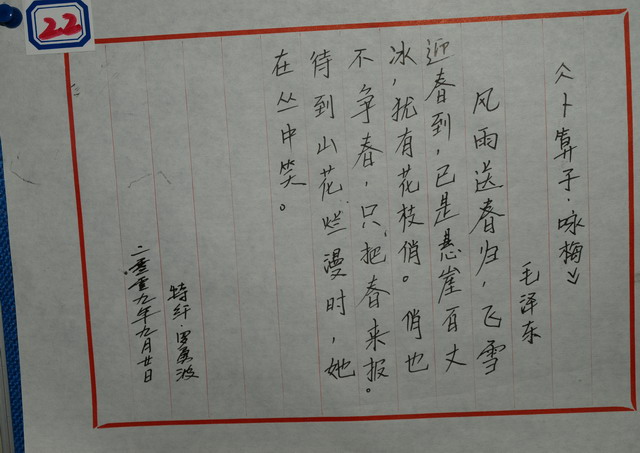 22
《卜算子·咏梅》
毛泽东
风雨送春归，飞雪
迎春到，已是悬崖百丈
冰，犹有花枝俏。俏也
不争春，只把春来报。
待到山花烂漫时，她
在丛中笑。
特纤·罗勇波
二零壹九年九月廿日